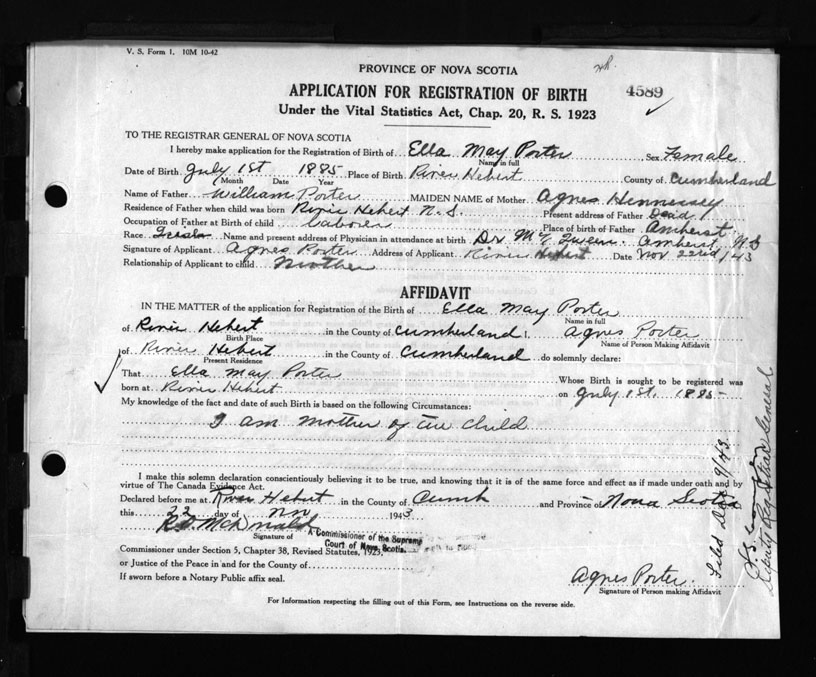 V. S. Form 1. 10M 10-42
PROVINCE OF NOVA SCOTIA
APPLICATION FOR REGISTRATION OF BIRTH 4589
Under the Vital Statistics Act, Chap. 20, R. S. 1923
TO THE REGISTRAR GENERAL OF NOVA SCOTIA
I hereby make application for the Registration of Birth of Ella May Porter Sex Female
Name in full
Date of Birth July 1st 1885 Place of Birth River Hebert County of Cumberland
Month Date Year
Name of Father William Porter MAIDEN NAME of Mother Agnes Hennessey
Residence of Father when child was born River Hebert N.S. Present address of Father Dead
Occupation of Father at Birth of child Laborer Place of birth of Father Amherst
Race Name and present address of Physician in attendance at birth Dr. Amherst, N.S
Signature of Applicant Agnes Porter Address of Applicant River Hebert Date Nov 22nd /43
Relationship of Applicant to child Mother
AFFIDAVIT
IN THE MATTER of the application for Registration of the Birth of Ella May Porter
Name in full
of River Hebert in the County of Cumberland I, Agnes Porter
Birth Place Name of Person Making Affidavit
of River Hebert in the County of Cumberland do solemnly declare:
Present Residence
That Ella May Porter Whose Birth is sought to be registered was
born at River Hebert on July 1st. 1885
My knowledge of the fact and date of such Birth is based on the following Circumstances:
I am mother of the child
I make this solemn declaration conscientiously believing it to be true, and knowing that it is of the same force and effect as if made under oath and by
virtue of The Canada Evidence Act.
Declared before me at River Hebert in the County of Cumb and Province of Nova Scotia
this 22 day of Nov 1943
McDonald
Signature of A Commissioner of the Supreme
Court of Nova Scotia.
Commissioner under Section 5, Chapter 38, Revised Statutes, 1923.
or Justice of the Peace in and for the County of
If sworn before a Notary Public affix seal.
Agnes Porter
Signature of Person making Affidavit
For Information respecting the filling out of this Form, see Instructions on the reverse side.
Filed Dec 9/43
Deputy Registrar General